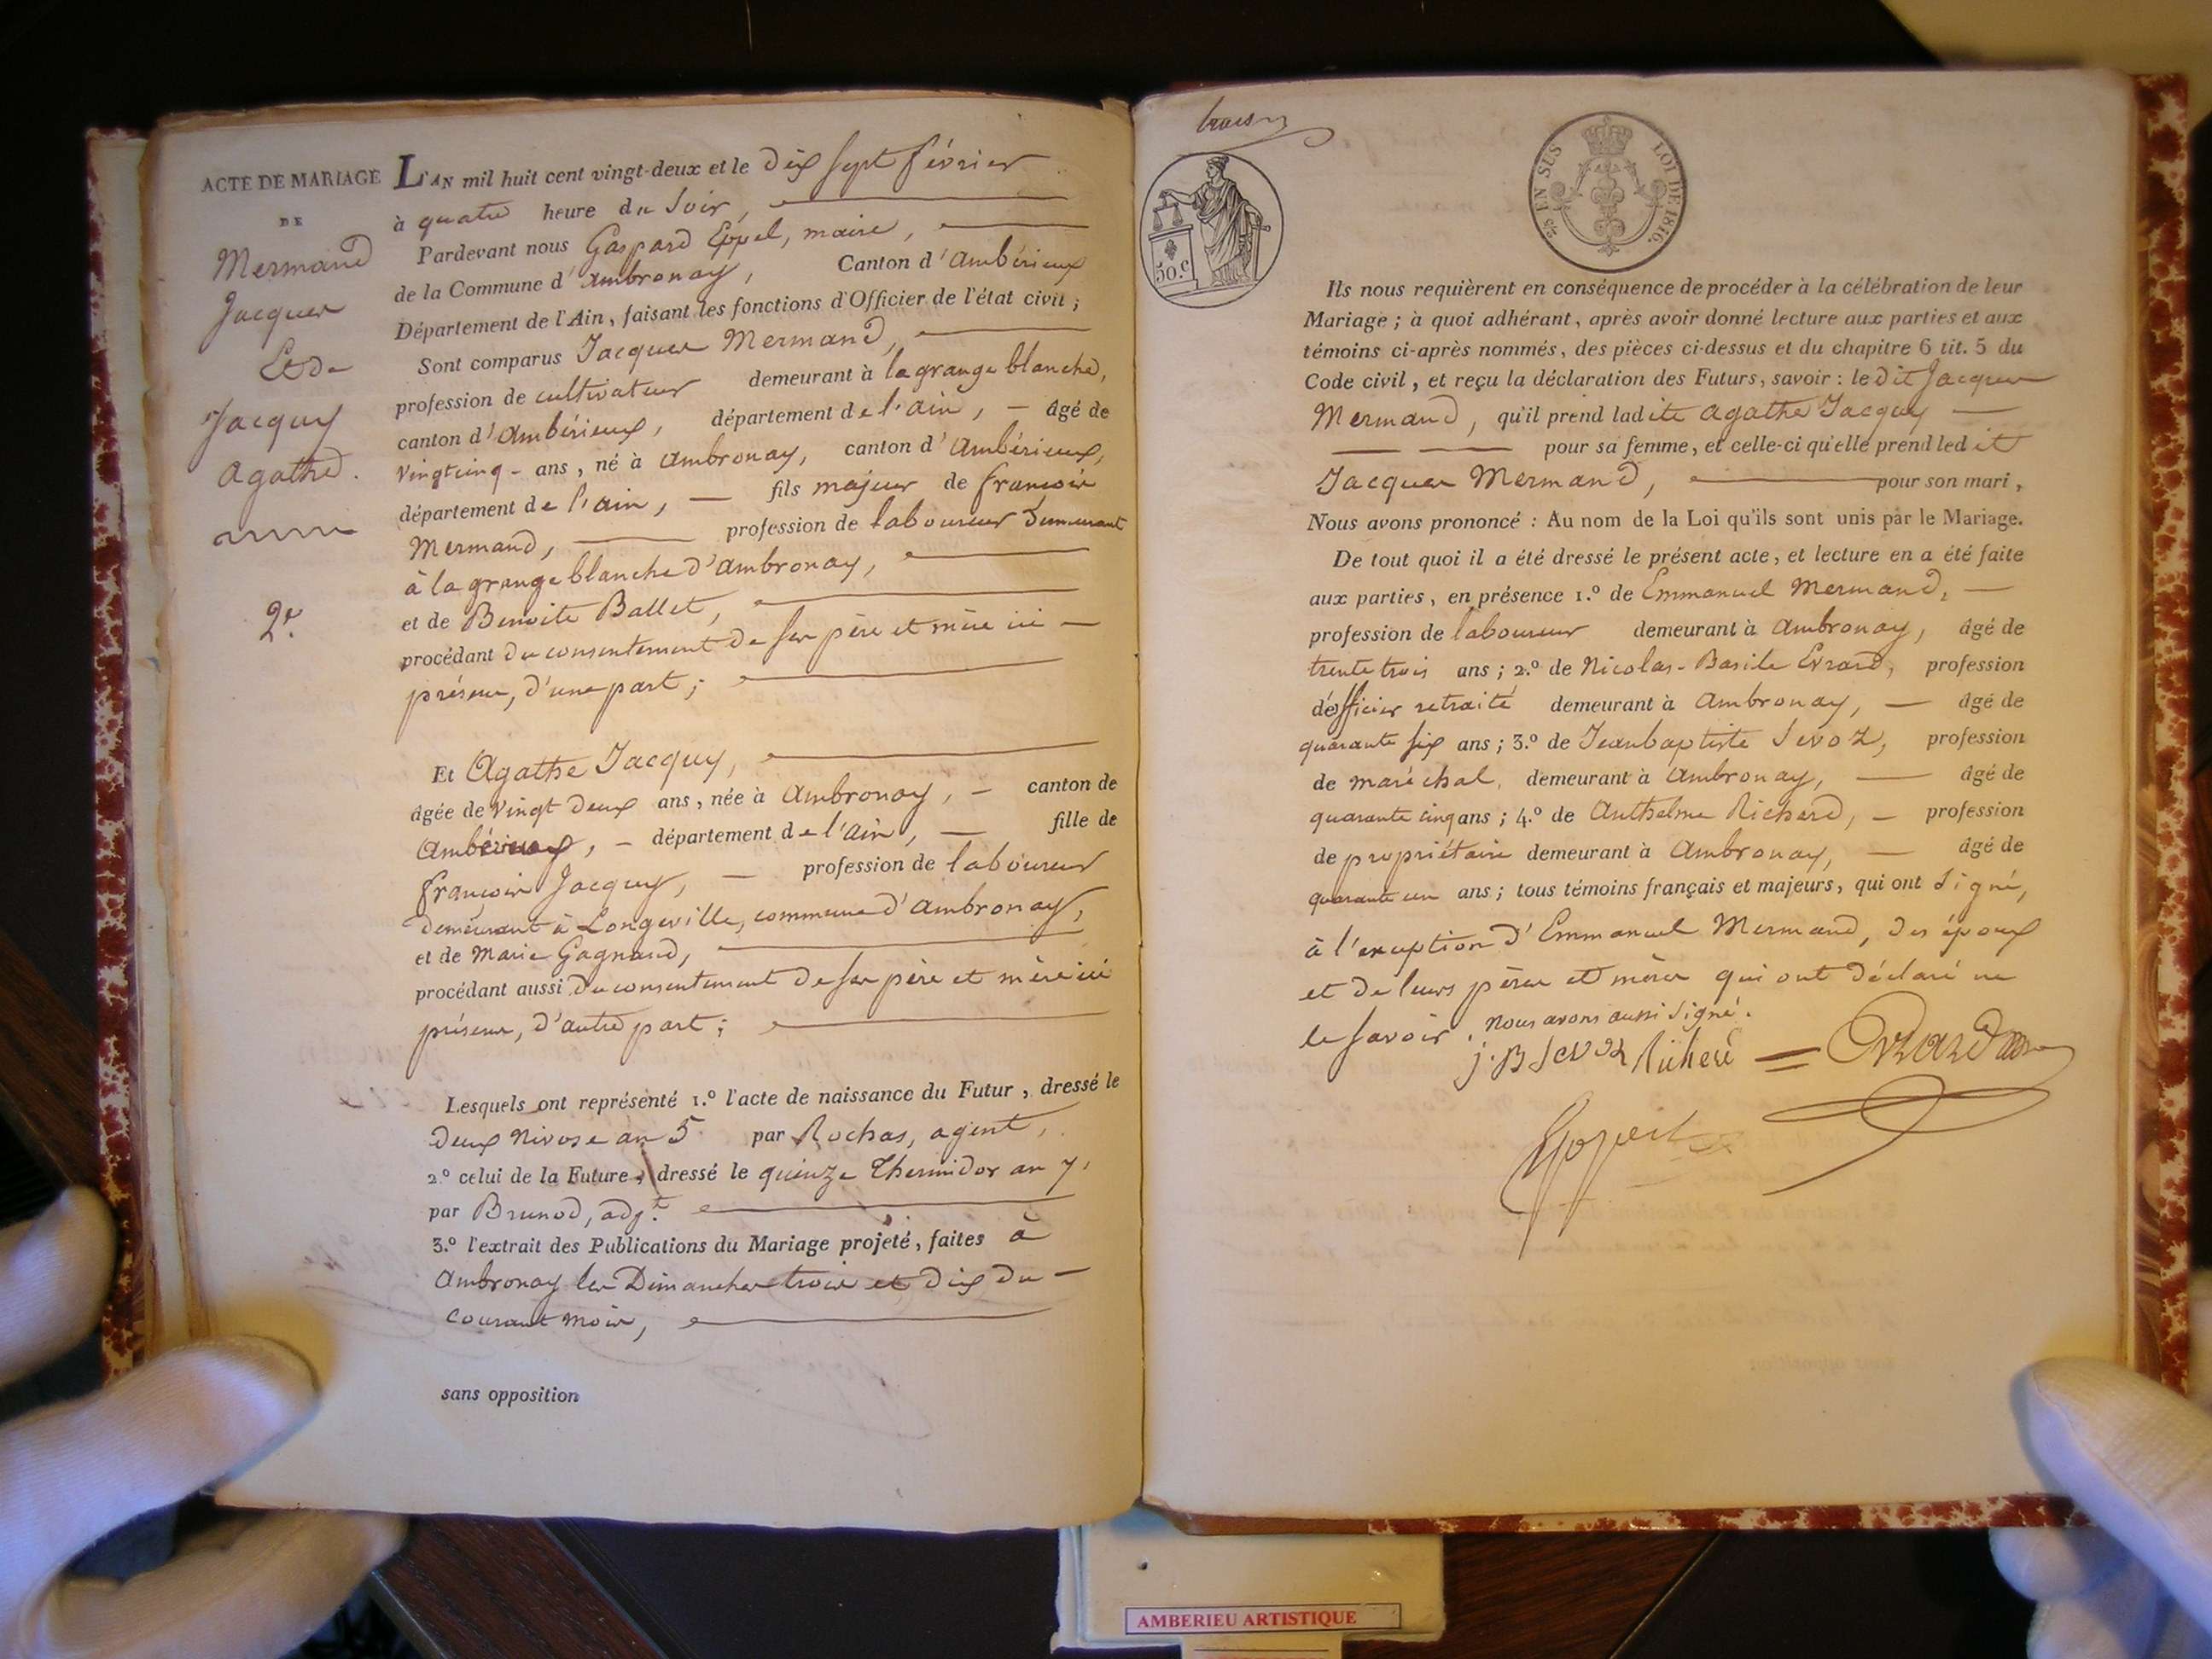 ACTE DE MARIAGE
DE
Mermand
Jacques
Et de
Jacquy
Agathe.
2e.
L'AN mil huit cent vingt-deux et le dix sept février
à quatre heure du soir,
Pardevant nous Gaspard Eppel, maire,
de la Commune d'ambronay, Canton d'ambérieux
Département de l'Ain, faisant les fonctions d'Officier de l'état civil;
Sont comparus Jacques Mermand,
profession de cultivateur demeurant à la grange blanche,
canton d'ambérieux, département de l'ain, — âgé de
vingtcinq - ans, né à ambronay, canton d'ambérieux,
département de l'ain, — fils majeur de françois
Mermand, — profession de laboureur demeurant
à la grange blanche d'ambronay,
et de Benoite Ballet,
procédant du consentement de ses père et mère ici —
présens, d'une part;
Et Agathe Jacquy,
âgée de vingt deux ans, née à Ambronay, — canton de
Ambérieux, — département de l'ain, — fille de
françois Jacquy, — profession de laboureur
demeurant à Longeville, commune d'ambronay,
et de Marie Gagnard,
procédant aussi du consentement de ses père et mère ici
présens, d'autre part;
Lesquels ont représenté 1.º l'acte de naissance du Futur, dressé le
deux Nivose an 5 par Rochas, agent,
2º celui de la Future, dressé le quinze Thermidor an 7,
par Brunod, adj.t
3.º l'extrait des Publications du Mariage projeté, faites à
Ambronay les Dimanches trois et dix du —
courant mois,
sans opposition
trois
50.c
2/5 EN SUS LOI DE 1816.
Ils nous requièrent en conséquence de procéder à la célébration de leur
Mariage; à quoi adhérant, après avoir donné lecture aux parties et aux
témoins ci-après nommés, des pièces ci-dessus et du chapitre 6 tit. 5 du
Code civil, et reçu la déclaration des Futurs, savoir: le dit Jacques
Mermand, qu'il prend ladite agathe Jacquy —
— — pour sa femme, et celle-ci qu'elle prend ledit
Jacques Mermand, — pour son mari,
Nous avons prononcé: Au nom de la Loi qu'ils sont unis par le Mariage.
De tout quoi il a été dressé le présent acte, et lecture en a été faite
aux parties, en présence 1.º de Emmanuel Mermand, —
profession de laboureur demeurant à Ambronay, âgé de
trente trois ans; 2.º de Nicolas-Basile Evrard, profession
d'officier retraité demeurant à Ambronay, — âgé de
quarante six ans; 3.º de Jeanbaptiste Sevoz, profession
de maréchal, demeurant à Ambronay, — âgé de
quarante cinq ans; 4.º de Anthelme Richerd, — profession
de propriétaire demeurant à Ambronay, — âgé de
quarante un ans; tous témoins français et majeurs, qui ont signé,
à l'exception d'Emmanuel Mermand, des époux
et de leurs pères et mères qui ont déclaré ne
le savoir. Nous avons aussi signé.
j. B Sevoz Richerd = Evrard
Eppel
AMBERIEU ARTISTIQUE